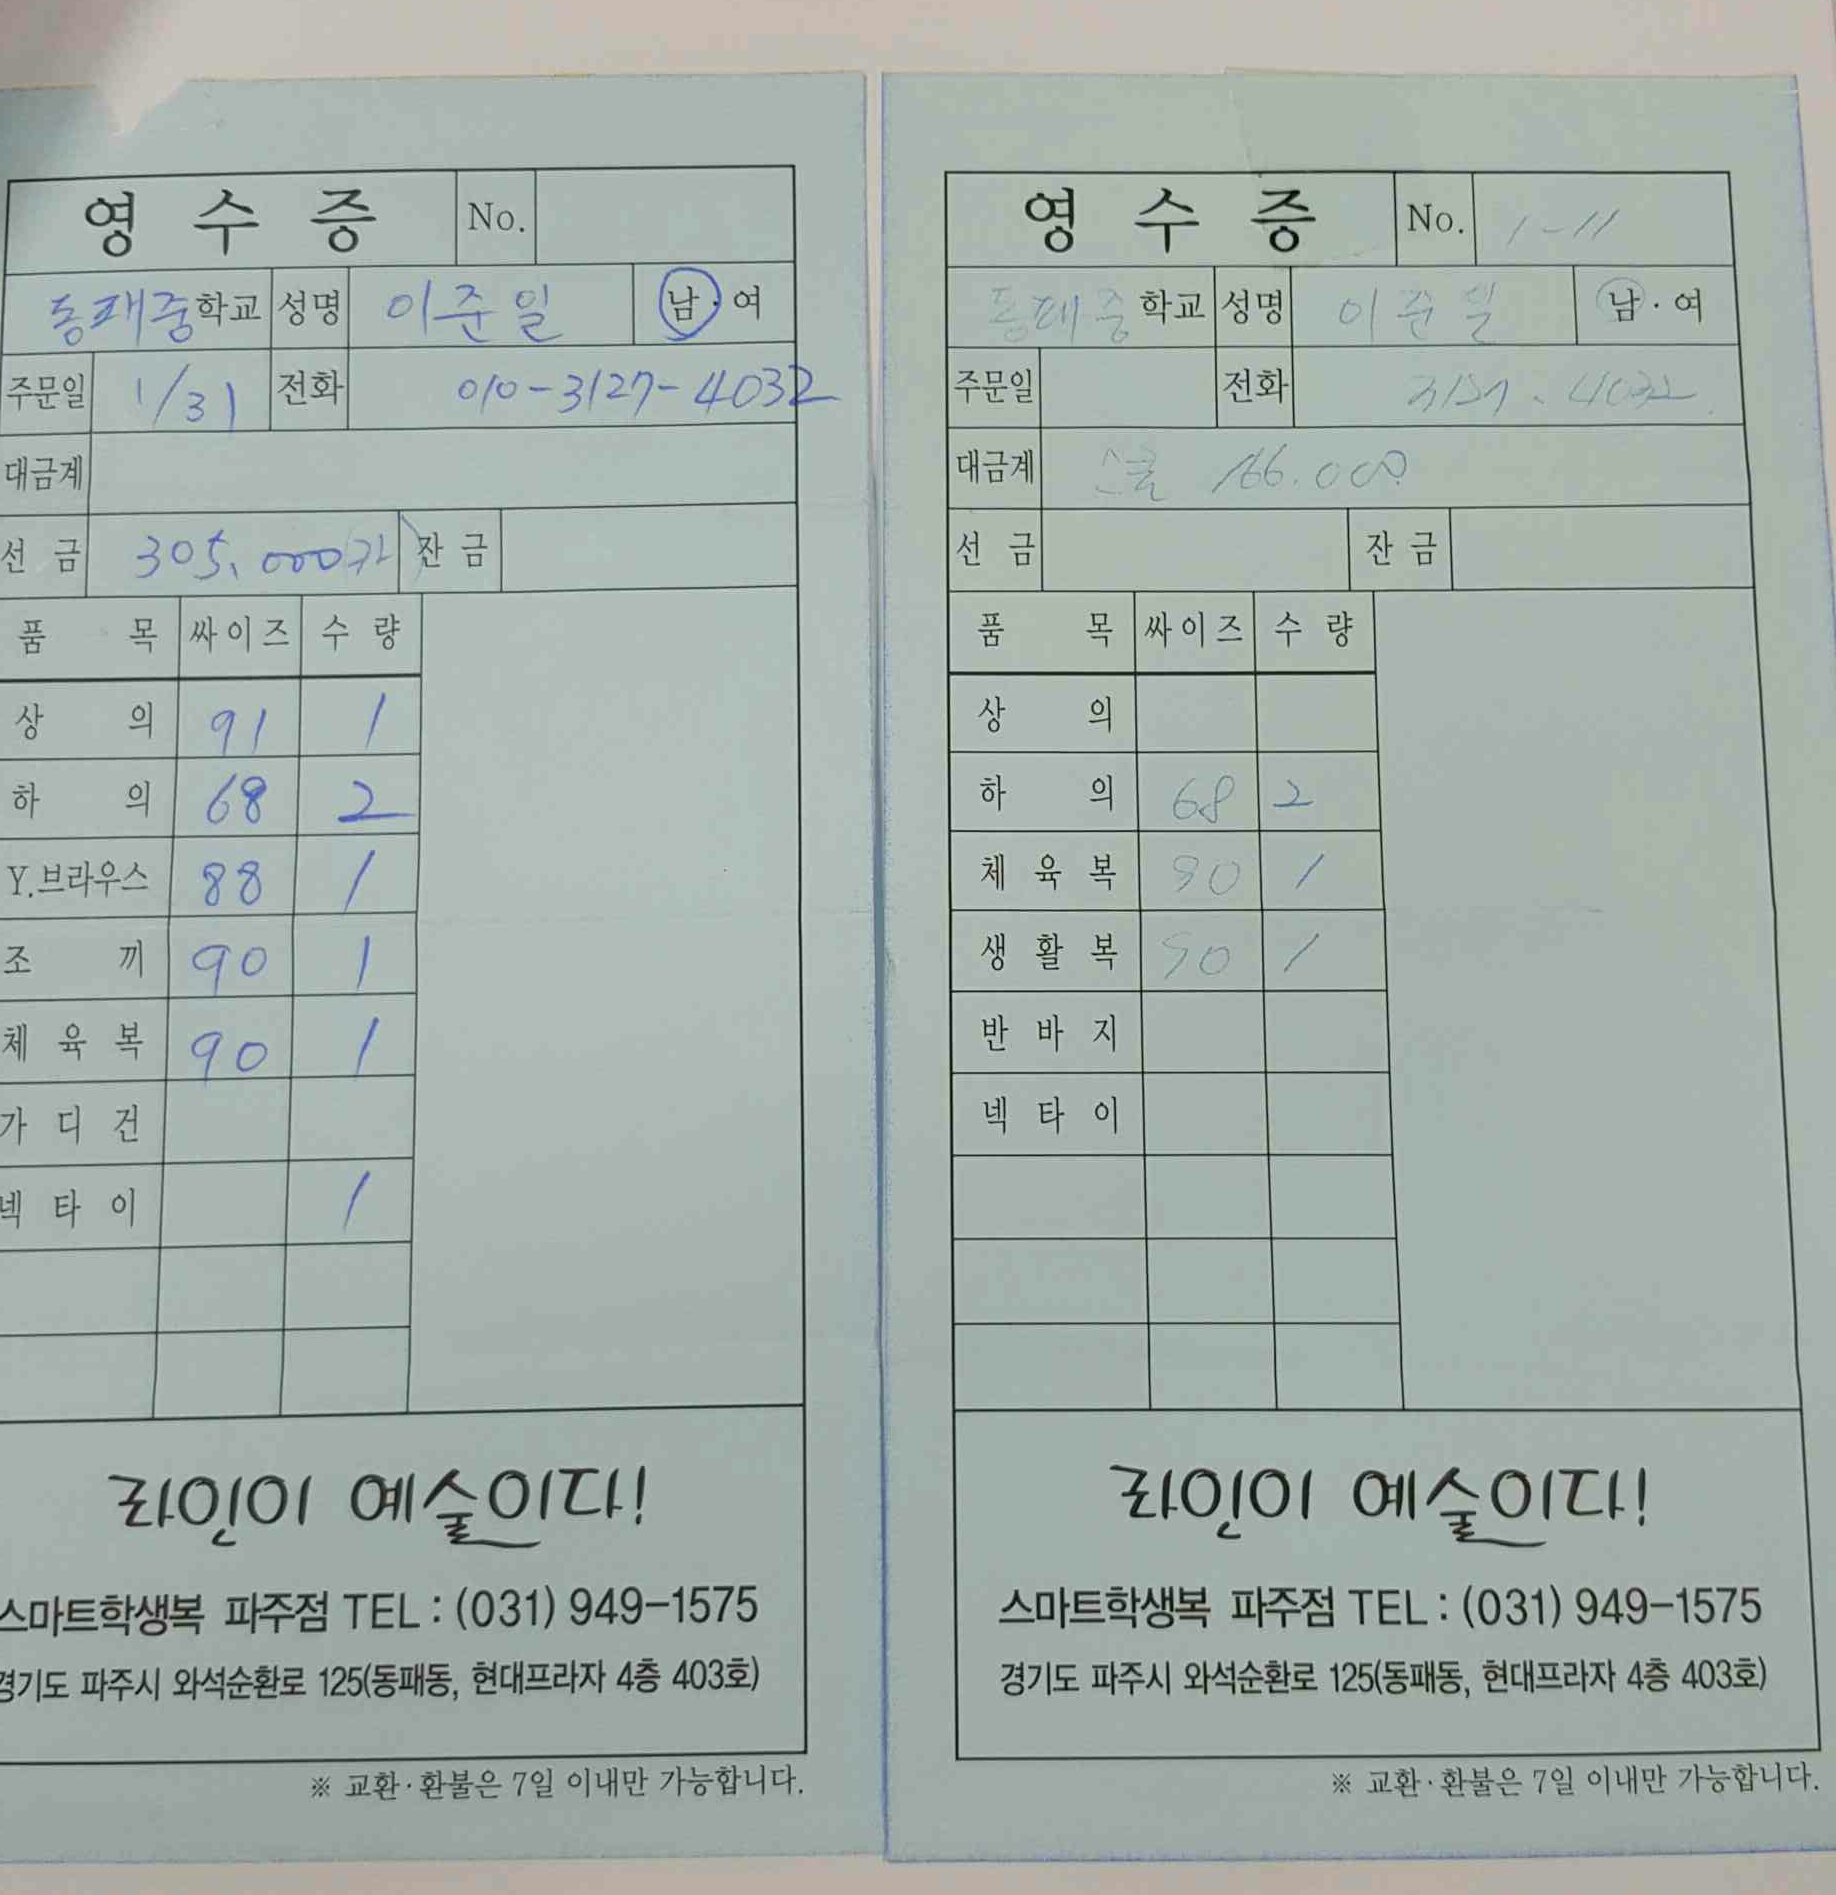 영 수 증 No.
동패중 학교 성명 이준일 남 · 여
주문일 1/31 전화 010-3127-4032
대금계
선 금 305,000 잔 금
품 목 싸이즈 수 량
상 의 91 1
하 의 68 2
Y.브라우스 88 1
조 끼 90 1
체 육 복 90 1
가 디 건
넥 타 이 1
라인이 예술이다!
스마트학생복 파주점 TEL : (031) 949-1575
경기도 파주시 와석순환로 125(동패동, 현대프라자 4층 403호)
※ 교환·환불은 7일 이내만 가능합니다.
영 수 증 No. 1-11
동패중 학교 성명 이준일 남 · 여
주문일 전화 3127-4032
대금계 166.000
선 금 잔 금
품 목 싸이즈 수 량
상 의
하 의 68 2
체 육 복 90 1
생 활 복 90 1
반 바 지
넥 타 이
라인이 예술이다!
스마트학생복 파주점 TEL : (031) 949-1575
경기도 파주시 와석순환로 125(동패동, 현대프라자 4층 403호)
※ 교환·환불은 7일 이내만 가능합니다.